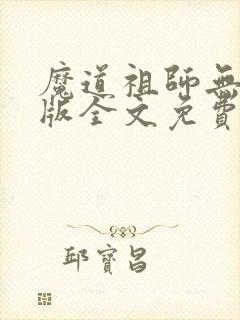 魔道祖師無
版全文免費
邱寶昌